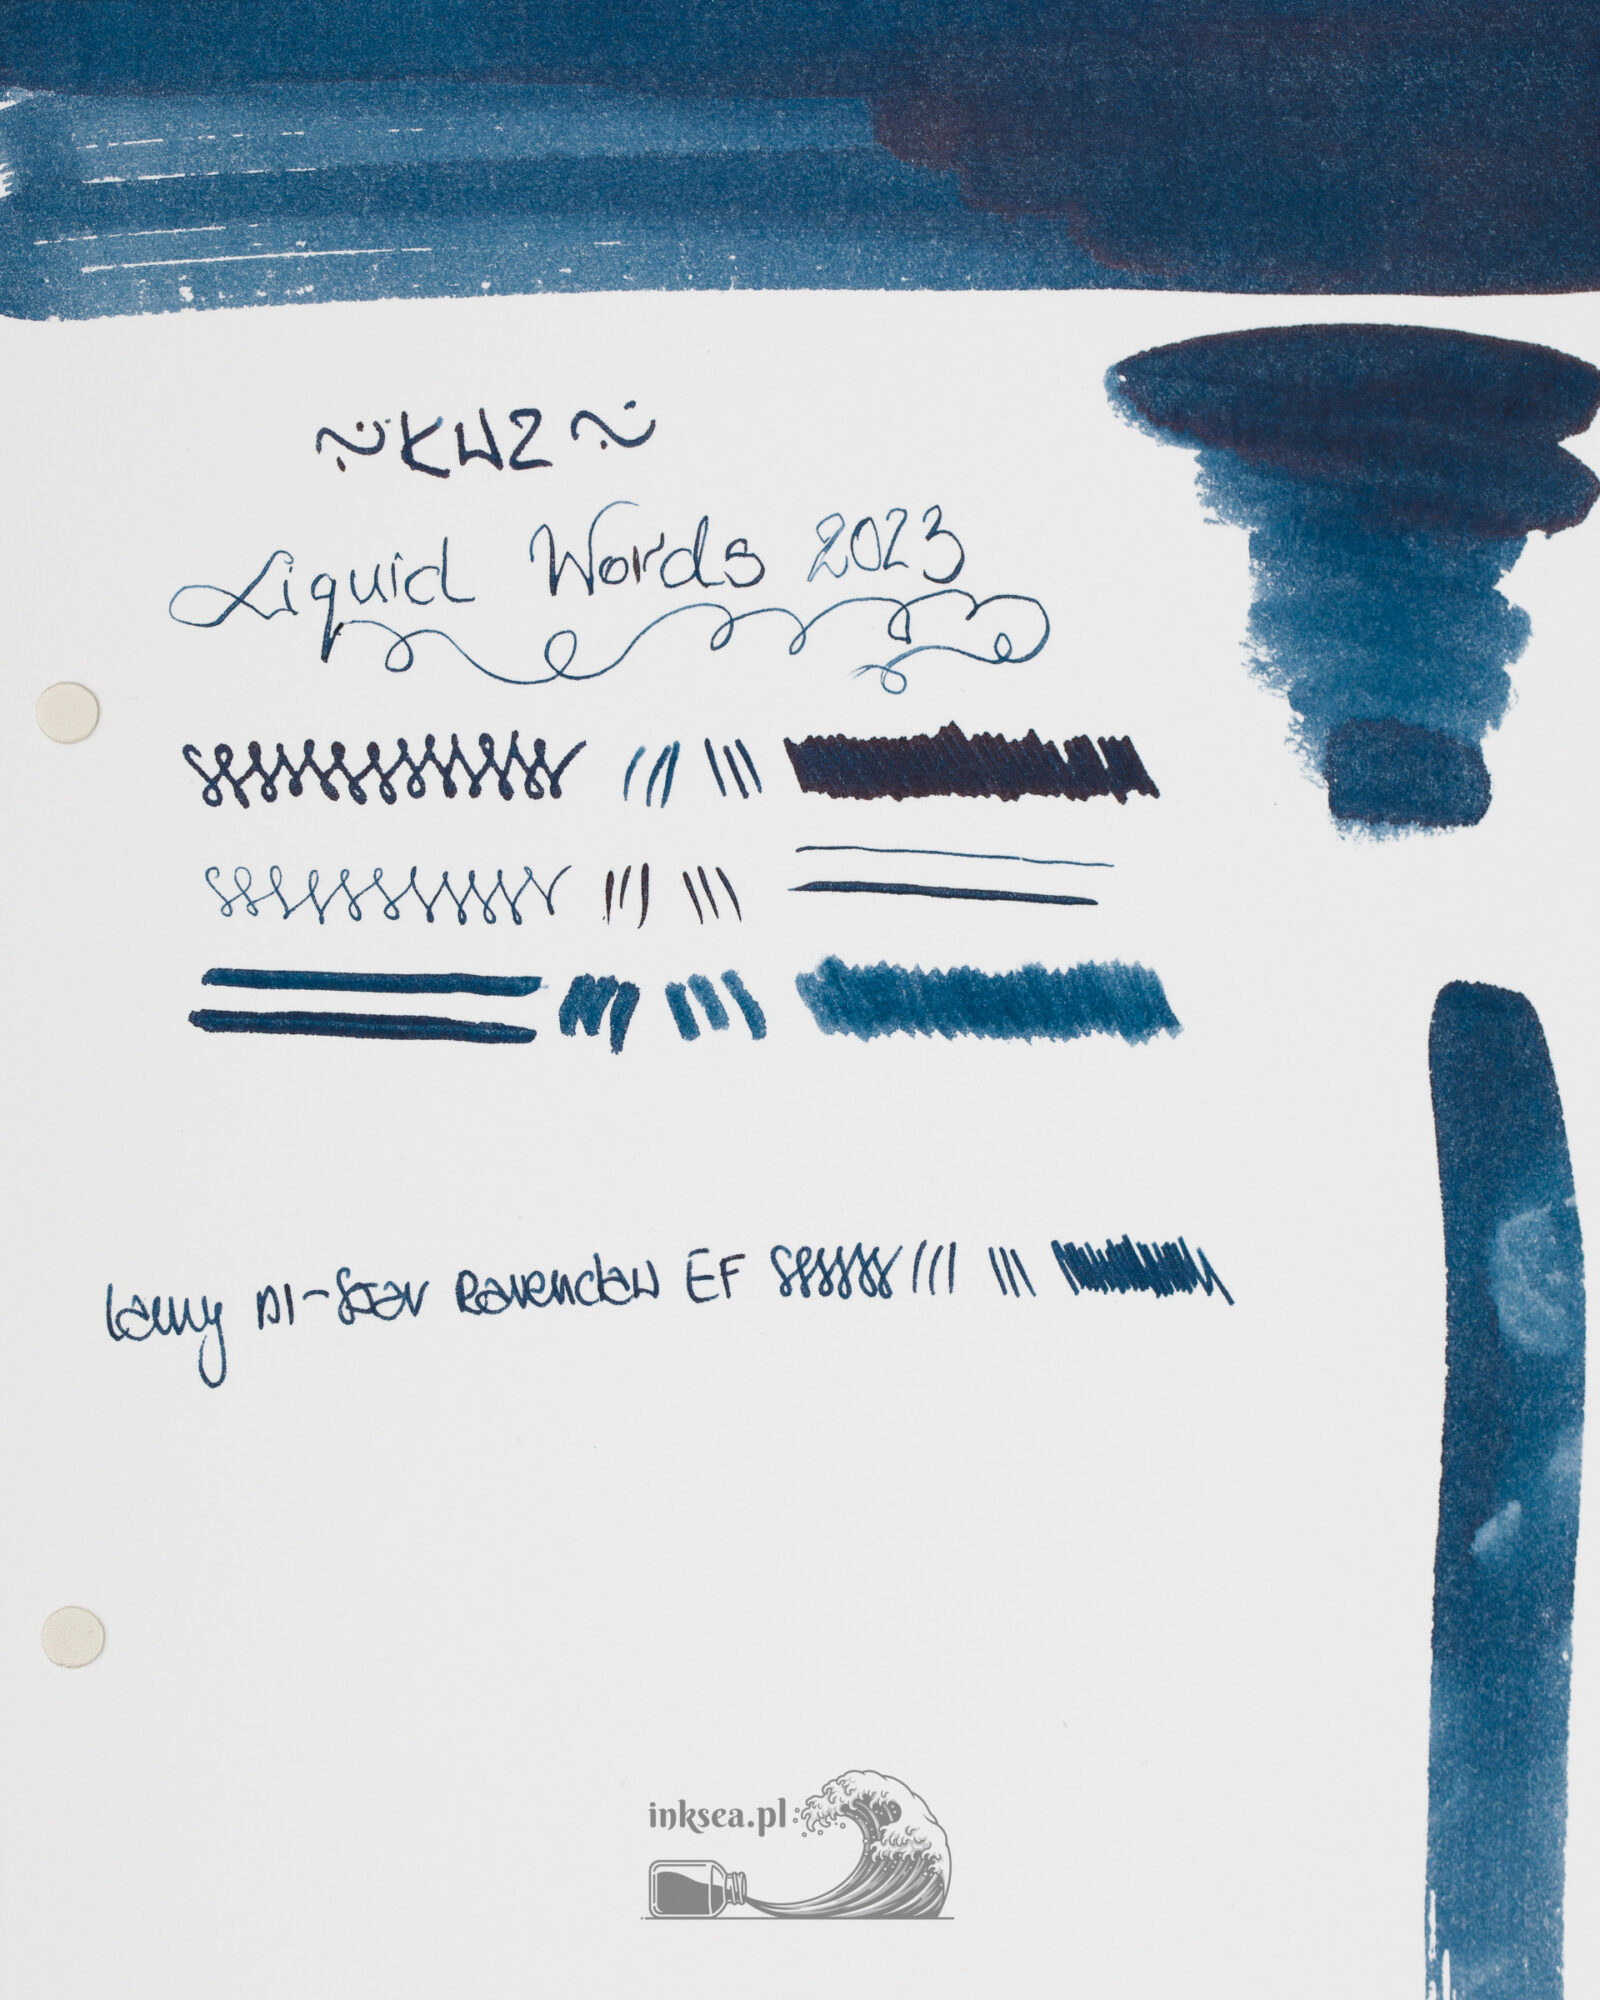 ~KWZ~
Liquid Words 2023
Lamy Al-Star Ravenclaw EF
inksea.pl